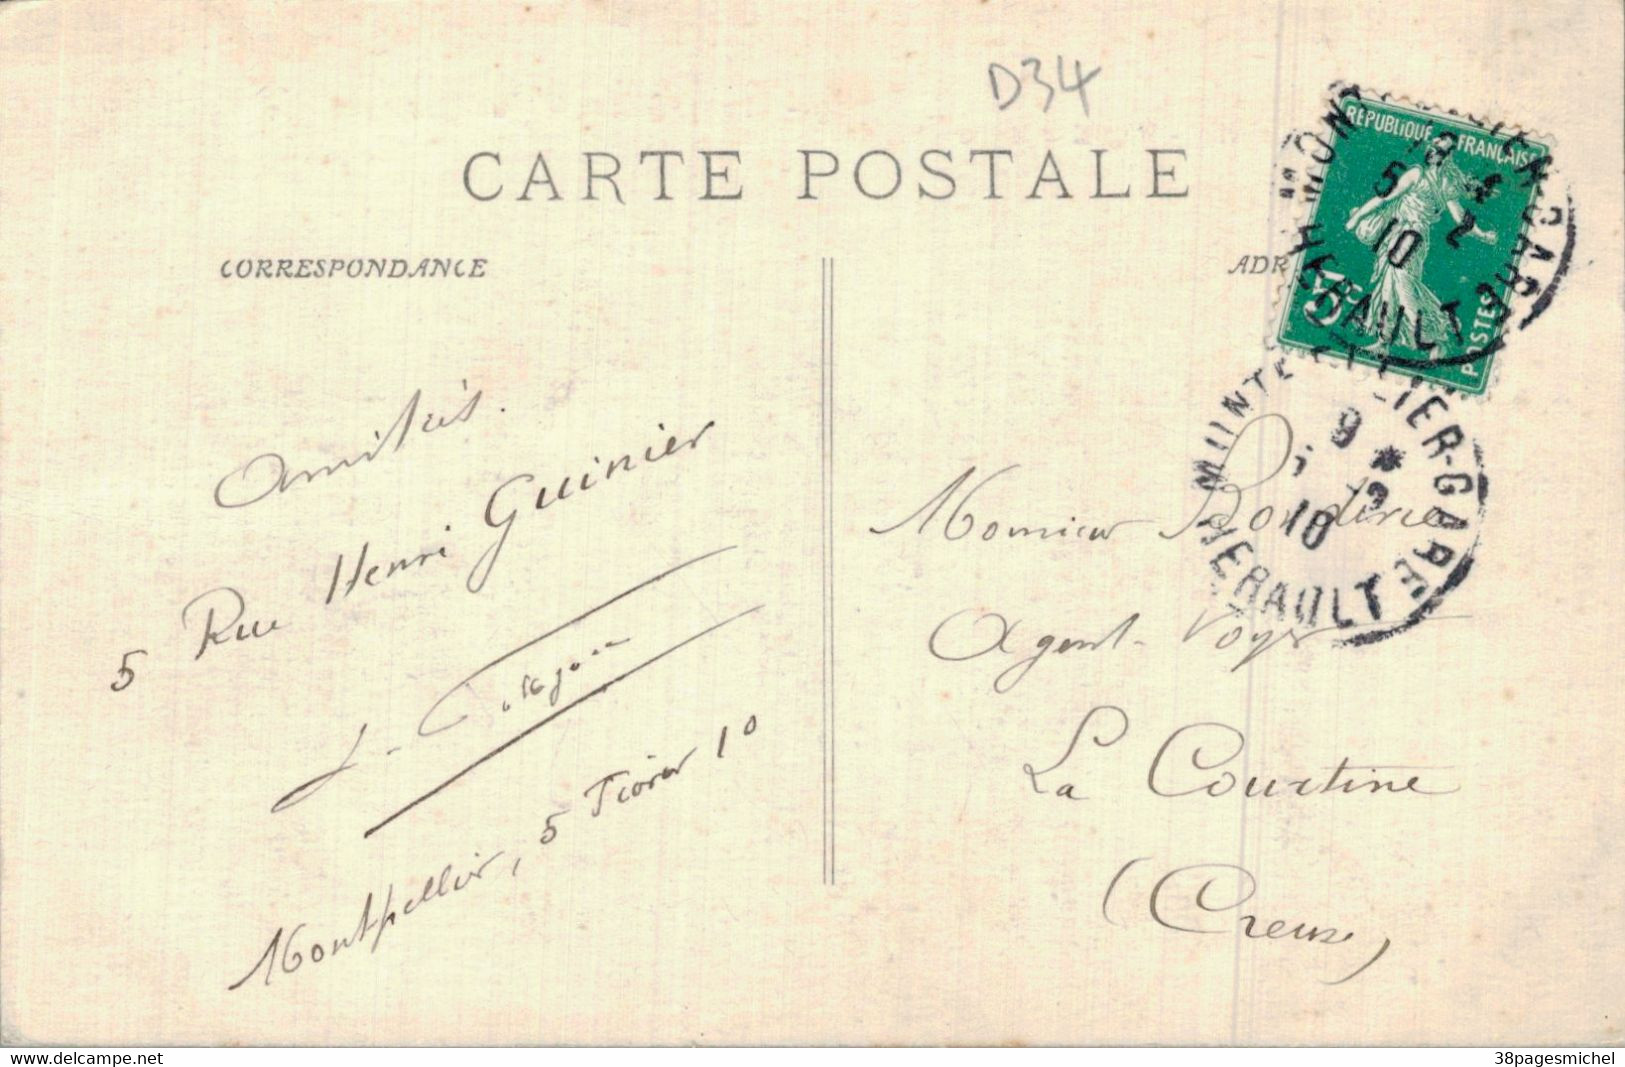 D34
CARTE POSTALE
CORRESPONDANCE
ADR
RÉPUBLIQUE FRANÇAISE
5c
POSTES
MONTPELLIER-GARE
18 *
5 2
10
HERAULT
MONTPELLIER-GARE
9 *
2
10
HERAULT
Amitiés.
5 Rue Henri Guinier
Montpellier, 5 Février 10
Monsieur
Agent-Voyer
La Courtine
(Creuse)
delcampe.net
38pagesmichel